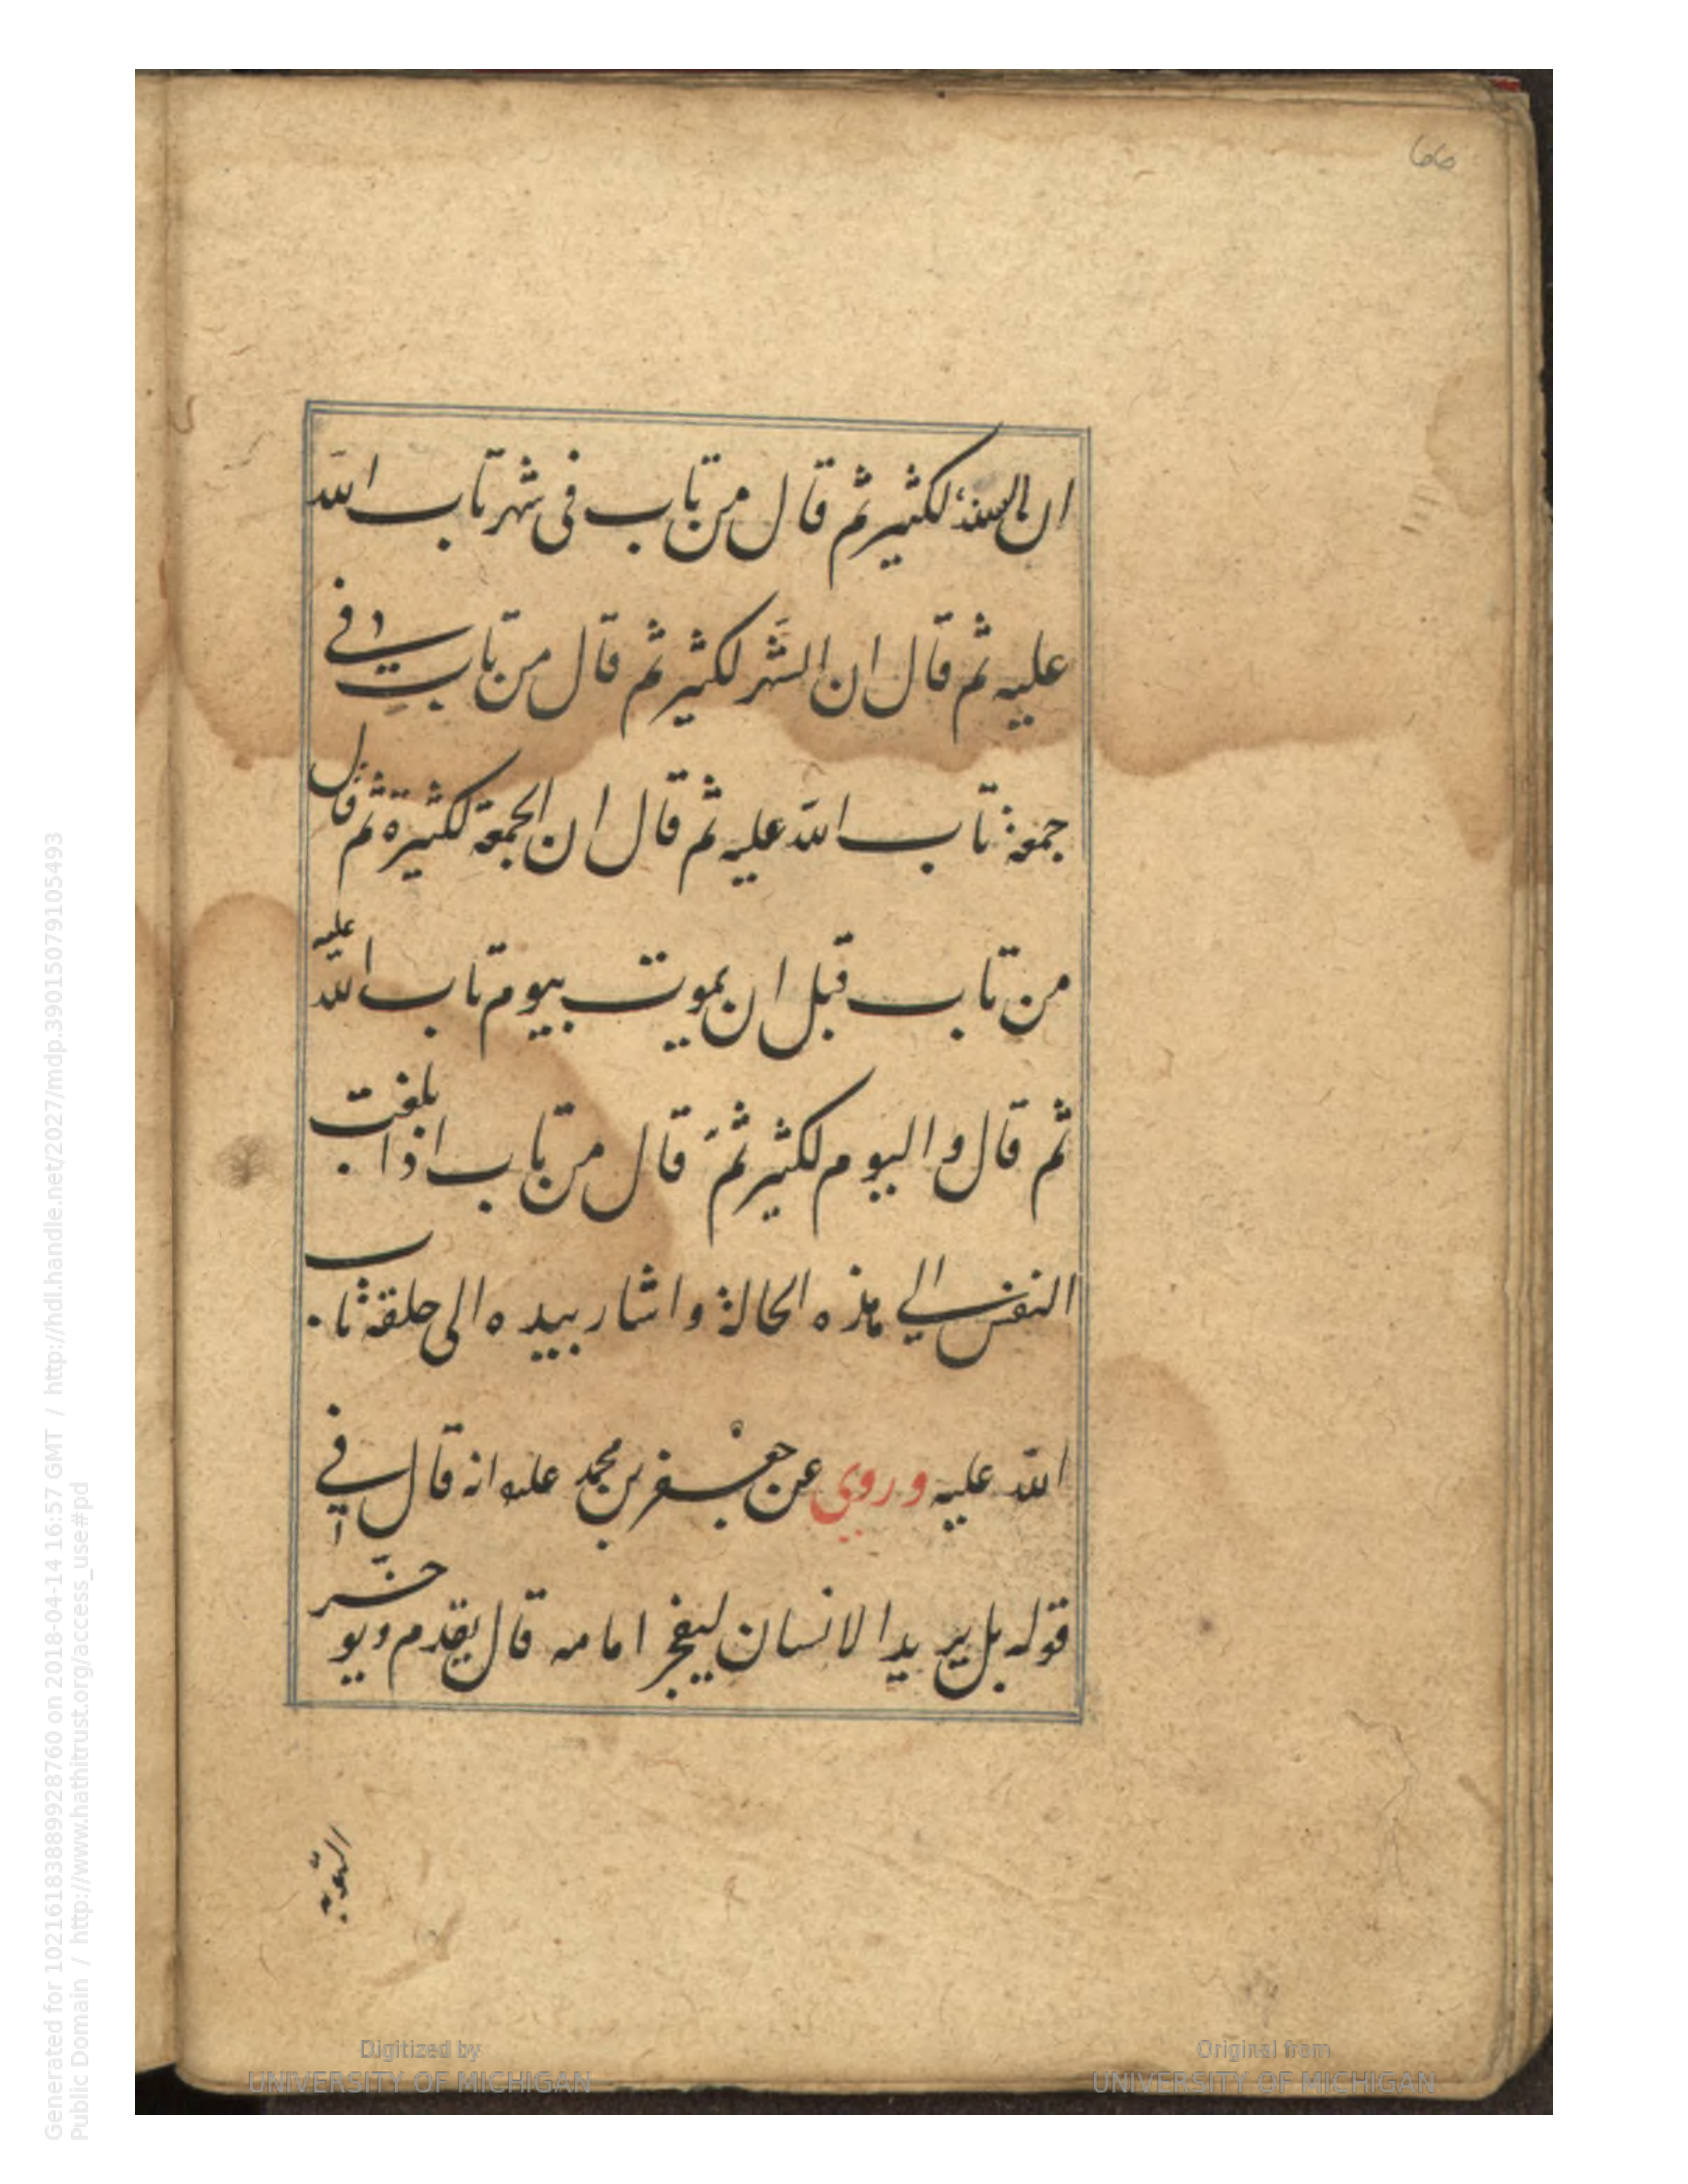 66
ان السنة لكثير ثم قال من تاب فى شهر تاب الله
عليه ثم قال ان الشهر لكثير ثم قال من تاب فے
جمعة تاب الله عليه ثم قال ان الجمعة لكثيرة ثم قال
من تاب قبل ان يموت بيوم تاب الله عليه
ثم قال و اليوم لكثير ثمَ قال من تاب اذا بلغت
النفس الے هذه الحالة و اشار بيده الى حلقه تاب
الله عليه و روي عن جعفر بن محمد علىه انه قال فے
قوله بل يريد الانسان ليفجر امامه قال يقدم ويوخر
التوبة
Digitized by
UNIVERSITY OF MICHIGAN
Original from
UNIVERSITY OF MICHIGAN
Generated for 102161838899928760 on 2018-04-14 16:57 GMT / http://hdl.handle.net/2027/mdp.39015079105493
Public Domain / http://www.hathitrust.org/access_use#pd